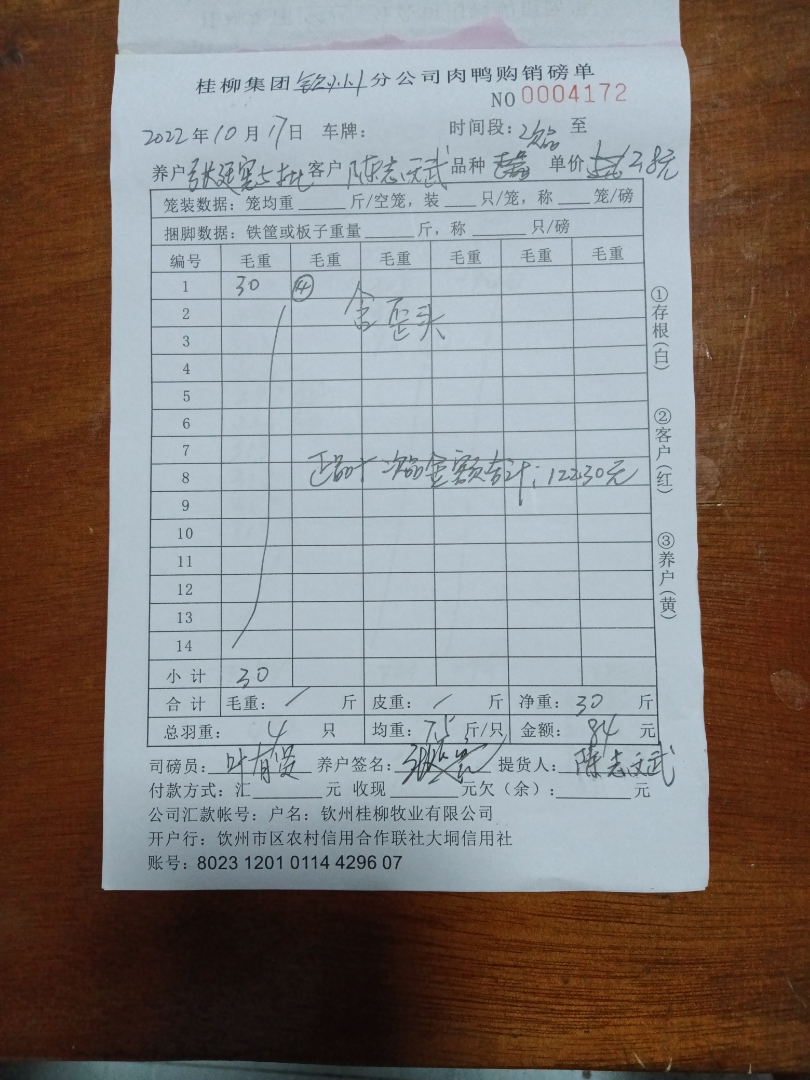 桂柳集团钦州分公司肉鸭购销磅单
NO 0004172
2022年10月17日 车牌： 时间段：次品 至
养户 张廷宽 客户 陈志武 品种 单价 2.8元
笼装数据：笼均重 斤/空笼，装 只/笼，称 笼/磅
捆脚数据：铁筐或板子重量 斤，称 只/磅
编号 毛重 毛重 毛重 毛重 毛重 毛重
1 30 ④
2 含歪头
3
4
5
6
7
8 正品+次品金额合计：12230元
9
10
11
12
13
14
小计 30
合计 毛重：/ 斤 皮重：/ 斤 净重：30 斤
总羽重：4 只 均重：7.5 斤/只 金额：84 元
司磅员：叶 养户签名： 提货人：陈志武
付款方式：汇 元 收现 元欠（余）： 元
公司汇款帐号：户名：钦州桂柳牧业有限公司
开户行：饮州市区农村信用合作联社大垌信用社
账号：8023 1201 0114 4296 07
①存根(白)
②客户(红)
③养户(黄)